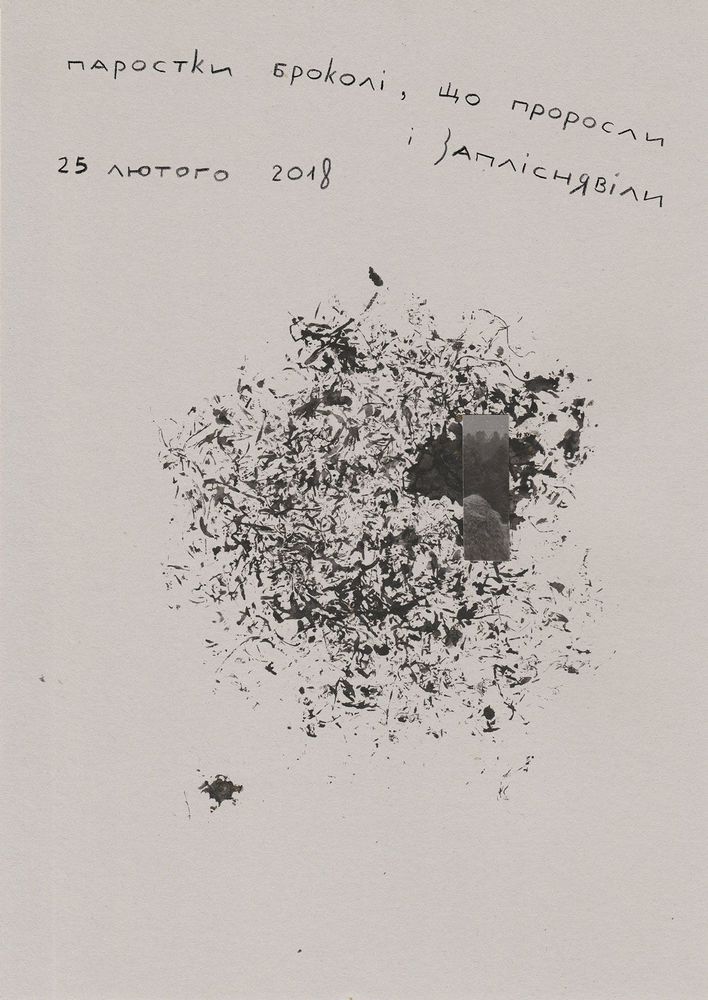 паростки броколі, що проросли
і запліснявіли
25 лютого 2018